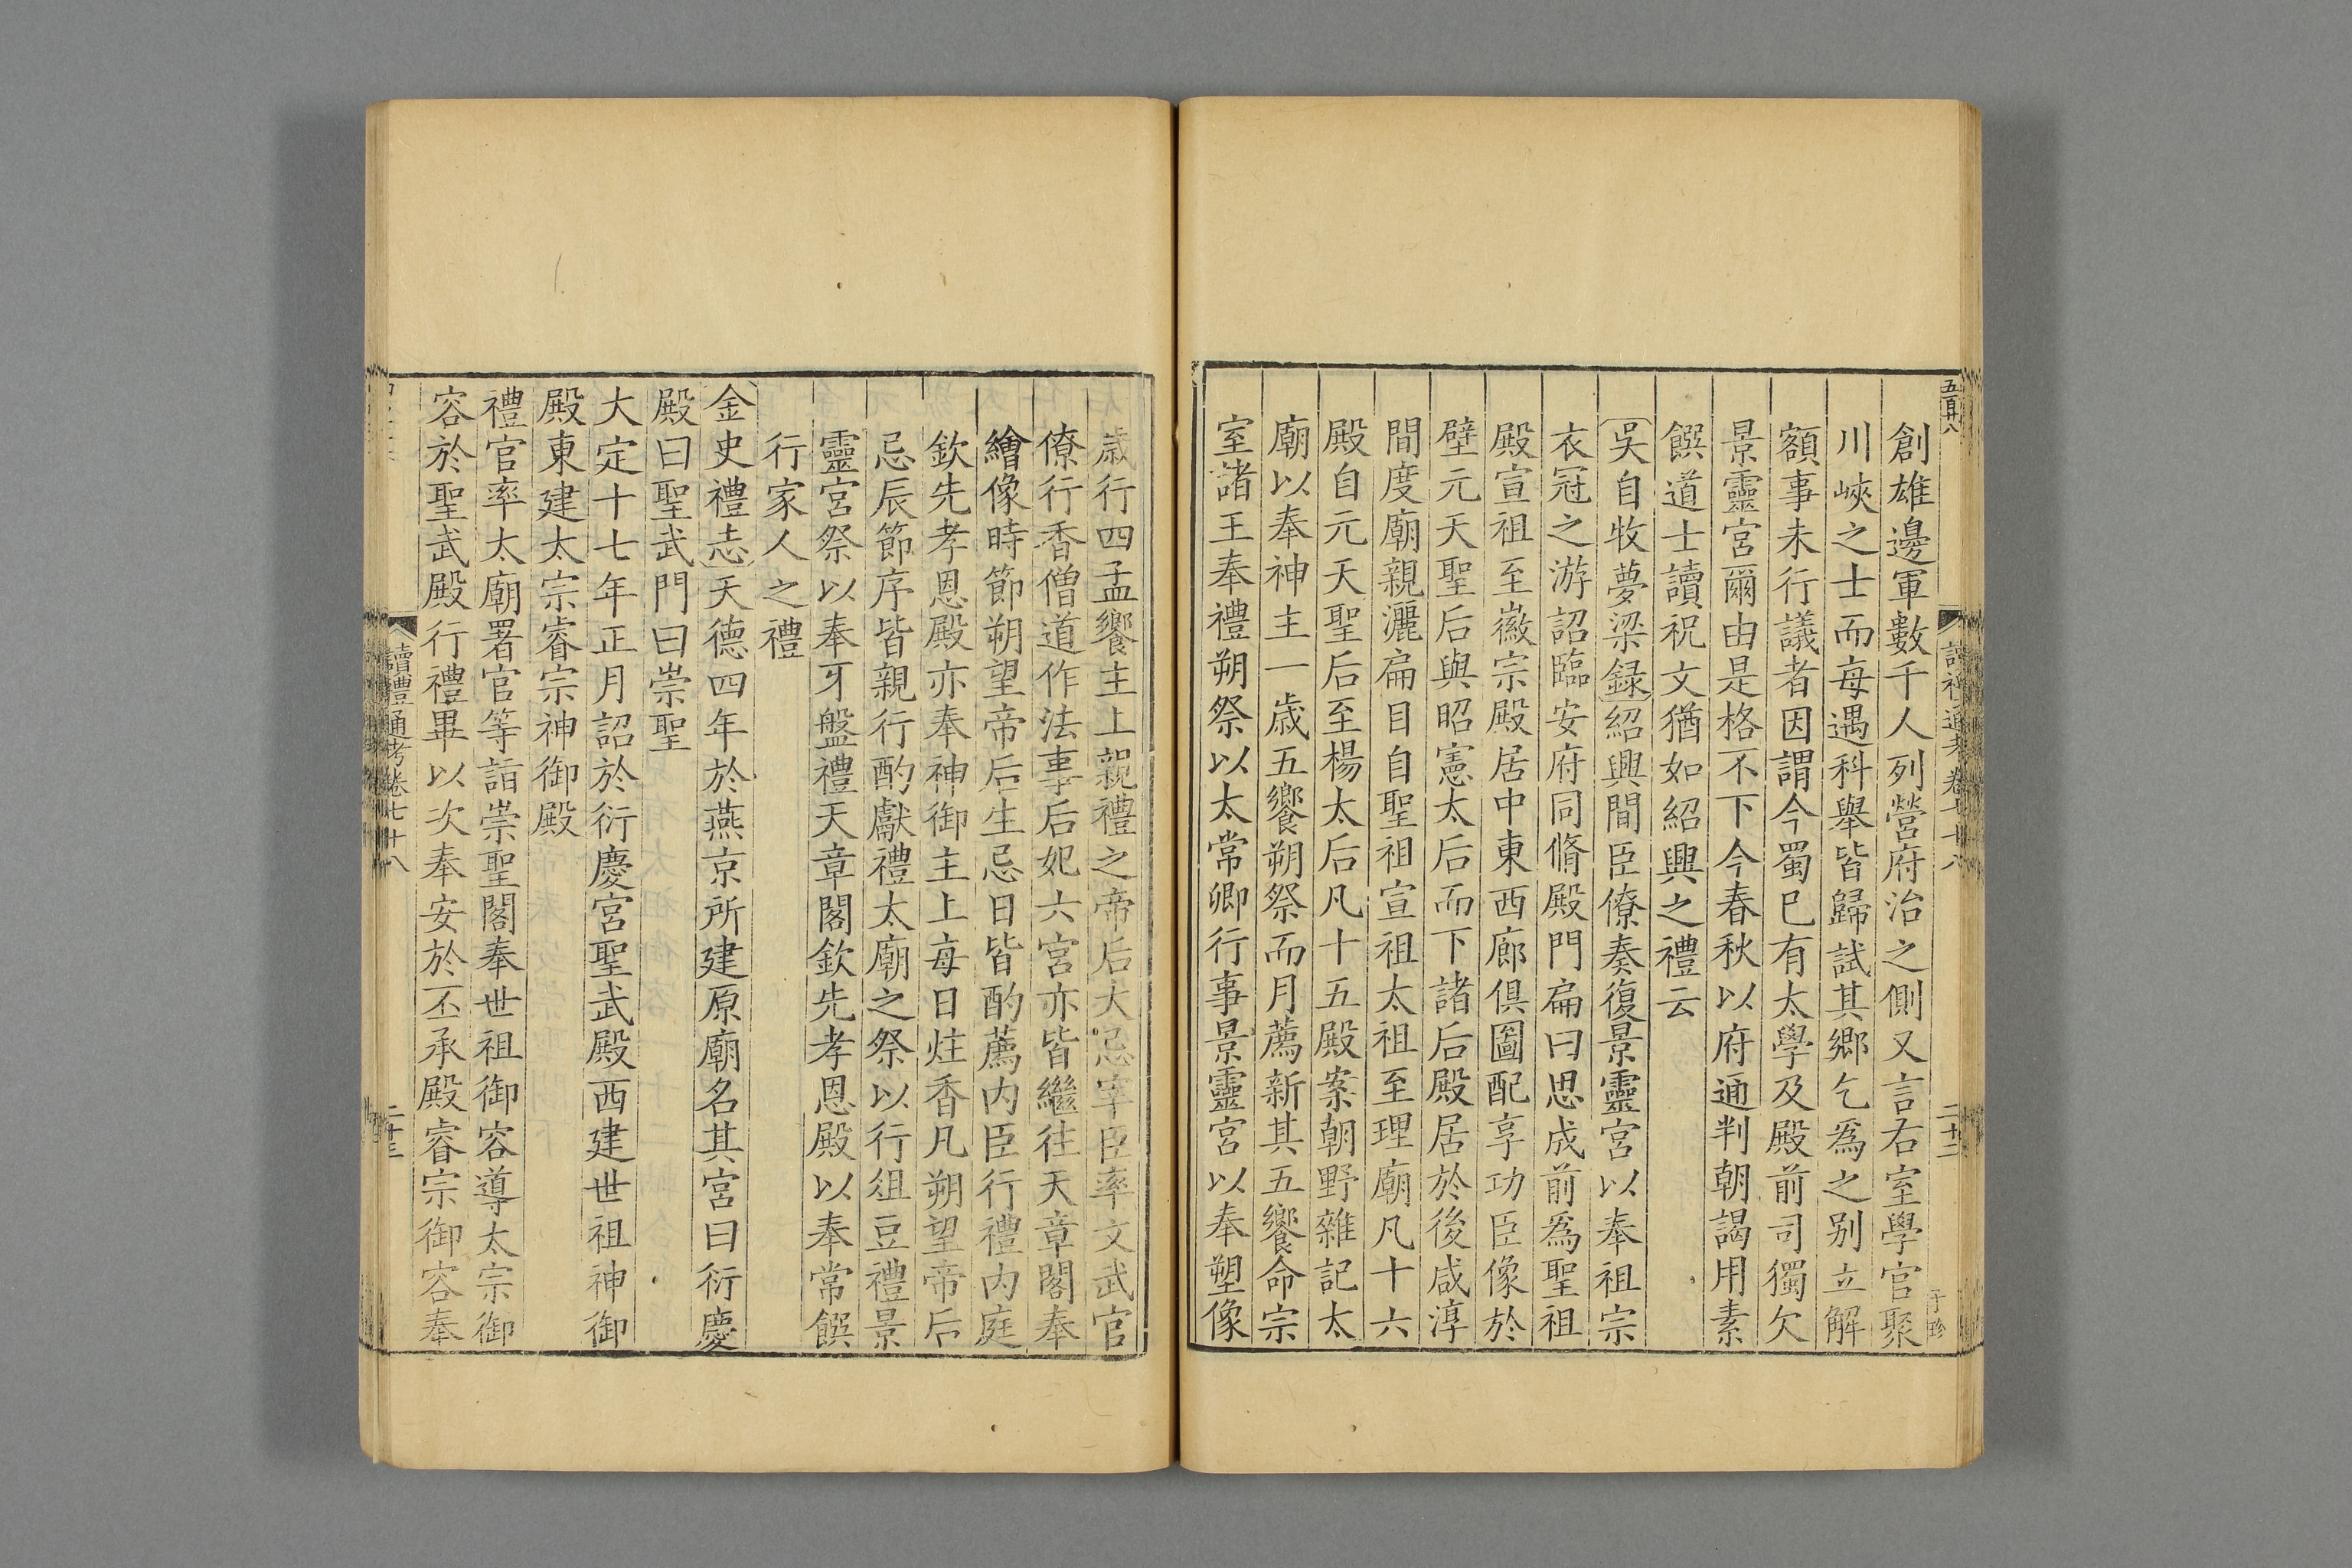 五百八
讀禮通考卷七十八
二十二
于珍
創雄邊軍數千人列營府治之側又言右室學官聚
川峽之士而每遇科舉皆歸試其鄉乞爲之别立解
額事未行議者因謂今蜀已有太學及殿前司獨欠
景靈宮爾由是格不下今春秋以府通判朝謁用素
饌道士讀祝文猶如紹興之禮云
吳自牧夢梁録紹興間臣僚奏復景靈宮以奉祖宗
衣冠之游詔臨安府同脩殿門扁曰思成前爲聖祖
殿宣祖至徽宗殿居中東西廊俱圖配享功臣像於
壁元天聖后與昭憲太后而下諸后殿居於後咸淳
間度廟親灑扁目自聖祖宣祖太祖至理廟凡十六
殿自元天聖后至楊太后凡十五殿案朝野雜記太
廟以奉神主一歲五饗朔祭而月薦新其五饗命宗
室諸王奉禮朔祭以太常卿行事景靈宮以奉塑像
歲行四孟饗主上親禮之帝后大忌宰臣率文武官
僚行香僧道作法事后妃六宮亦皆繼往天章閣奉
繪像時節朔望帝后生忌日皆酌薦内臣行禮内庭
欽先孝恩殿亦奉神御主上每日炷香凡朔望帝后
忌辰節序皆親行酌獻禮太廟之祭以行俎豆禮景
靈宮祭以奉牙盤禮天章閣欽先孝恩殿以奉常饌
行家人之禮
金史禮志天德四年於燕京所建原廟名其宮曰衍慶
殿曰聖武門曰崇聖
大定十七年正月詔於衍慶宮聖武殿西建世祖神御
殿東建太宗睿宗神御殿
禮官率太廟署官等詣崇聖閣奉世祖御容導太宗御
容於聖武殿行禮畢以次奉安於丕承殿睿宗御容奉
讀禮通考卷七十八
二十三